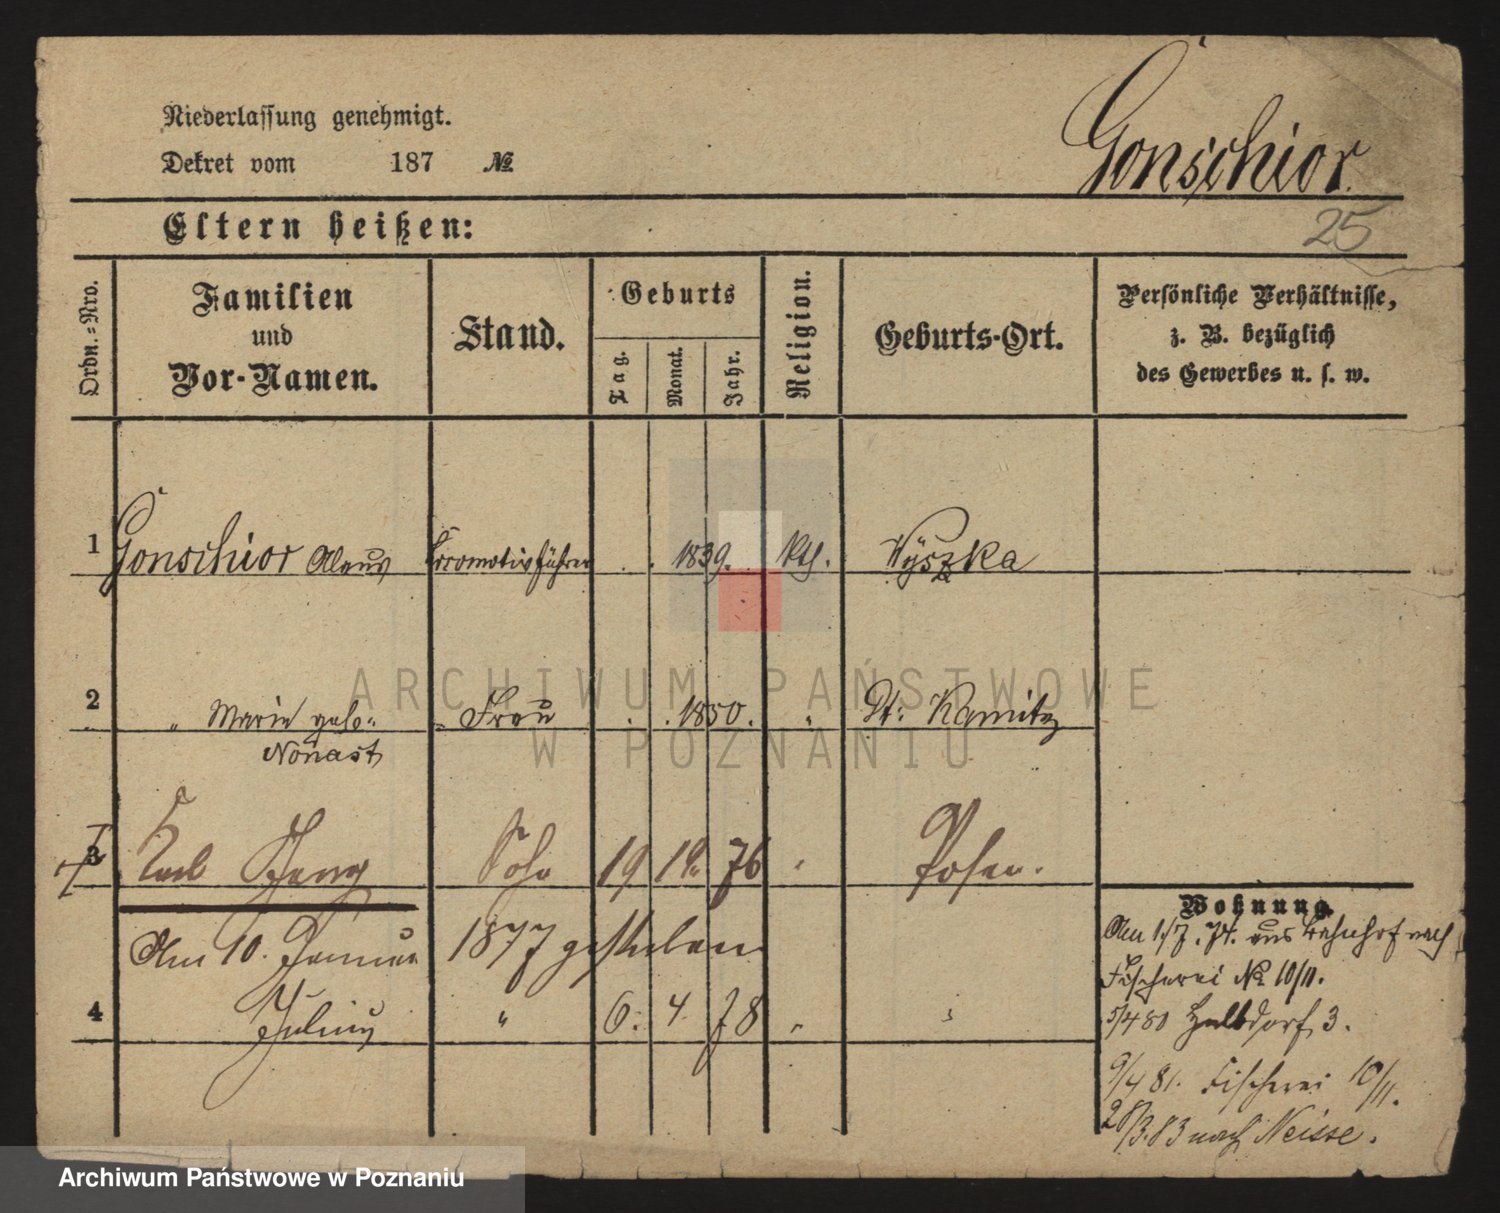 Niederlassung genehmigt.
Dekret vom 187 №
Gonschior.
Eltern heißen:
25
Ordn.=Nro.
Familien
und
Vor-Namen.
Stand.
Geburts
Tag.
Monat.
Jahr.
Religion.
Geburts-Ort.
Persönliche Verhältnisse,
z. B. bezüglich
des Gewerbes u. s. w.
1 Gonschior Locomotivführer . . 1839. kth. Wyszka
2 " Marie geb. " Frau . . 1850. " Kamitz
Nonast
3 Karl Sohn 19 12. 76 " Posen.
Am 10. Januar 1877 gestorben
4 Julius " 6. 4. 78 "
Wohnung.
Am 1/7. 74. aus Bahnhof nach
Fischerei № 10/11.
5/4 80 Halbdorf 3.
9/4 81. Fischerei 10/11.
28/3.83 nach Neisse.
ARCHIWUM PAŃSTWOWE
W POZNANIU
Archiwum Państwowe w Poznaniu